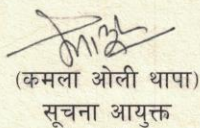 (कमला ओली थापा)
सूचना आयुक्त